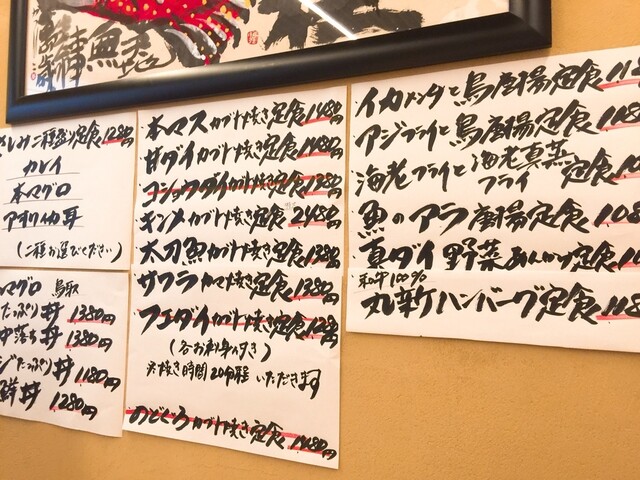 しみ二種盛り定食1280円
カレイ
本マグロ
アオリイカ耳
(二種お選びください)
マグロ 鳥取
たっぷり丼 1380円
中落ち丼 1380円
ジたっぷり丼 1180円
鮮丼 1280円
本マスカブト焼き定食1480円
甘ダイカブト焼き定食1480円
コショウダイカブト焼き定食1380円
キンメカブト焼き定食2480円
太刀魚カブト焼き定食1380円
サワラカマ焼き定食1380円
フエダイカブト焼き定食1280円
(各お刺身付き)
※焼き時間20分程いただきます
のどぐろカブト焼き定食1480円
イカメンチと鳥唐揚定食118
アジフライと鳥唐揚定食
海老フライと海老真蒸フライ定食
魚のアラ唐揚定食108
真ダイ野菜あんかけ定食
和牛100%
丸新ハンバーグ定食118